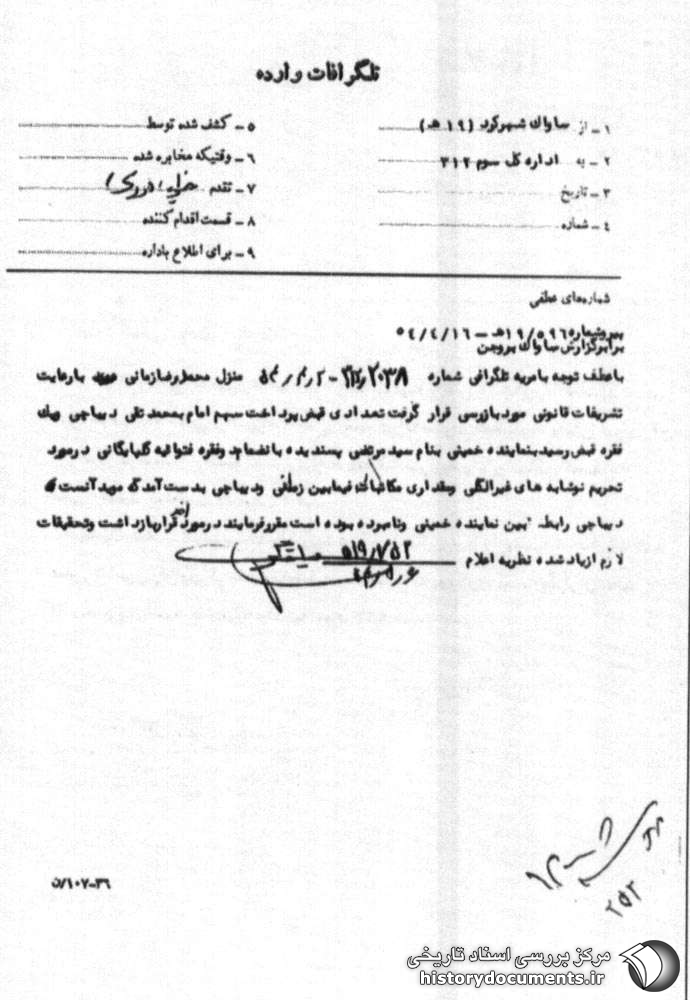 تلگرافات وارده
۱ ـ از ساواک شهرکرد (۱۹ هـ)
۲ ـ به اداره کل سوم ۳۱۲
۳ ـ تاریخ
۴ ـ شماره
۵ ـ کشف شده توسط
۶ ـ وقتیکه مخابره شده
۷ ـ تقدم
۸ ـ قسمت اقدام کننده
۹ ـ برای اطلاع باداره
شماره‌های عطفی
پیروشماره ۱۹/۵۹۶هـ ـ ۵۴/۴/۱۶
برابرگزارش ساواک بروجن
باعطف توجه بامریه تلگرافی شماره منزل محمدرضا زمانی بارعایت
تشریفات قانونی مورد بازرسی قرار گرفت تعدادی قبض پرداخت سهم امام بمحمد تقی دیباجی ویک
فقره قبض رسید بنماینده خمینی بنام سید مرتضی پسندیده بانضمام دوفقره فتوائیه گلپایگانی درمورد
تحریم نوشابه های غیرالکلی ومقداری مکاتبات فیمابین زمانی ودیباجی بدست آمد که موید آنست که
دیباجی رابط بین نماینده خمینی ونامبرده بوده است مقررفرمایند درمورد قراربازداشت وتحقیقات
لازم ازیاد شده نظریه اعلام
۳۶-۱۰۷/ن
۲۵۲
مرکز بررسی اسناد تاریخی
historydocuments.ir